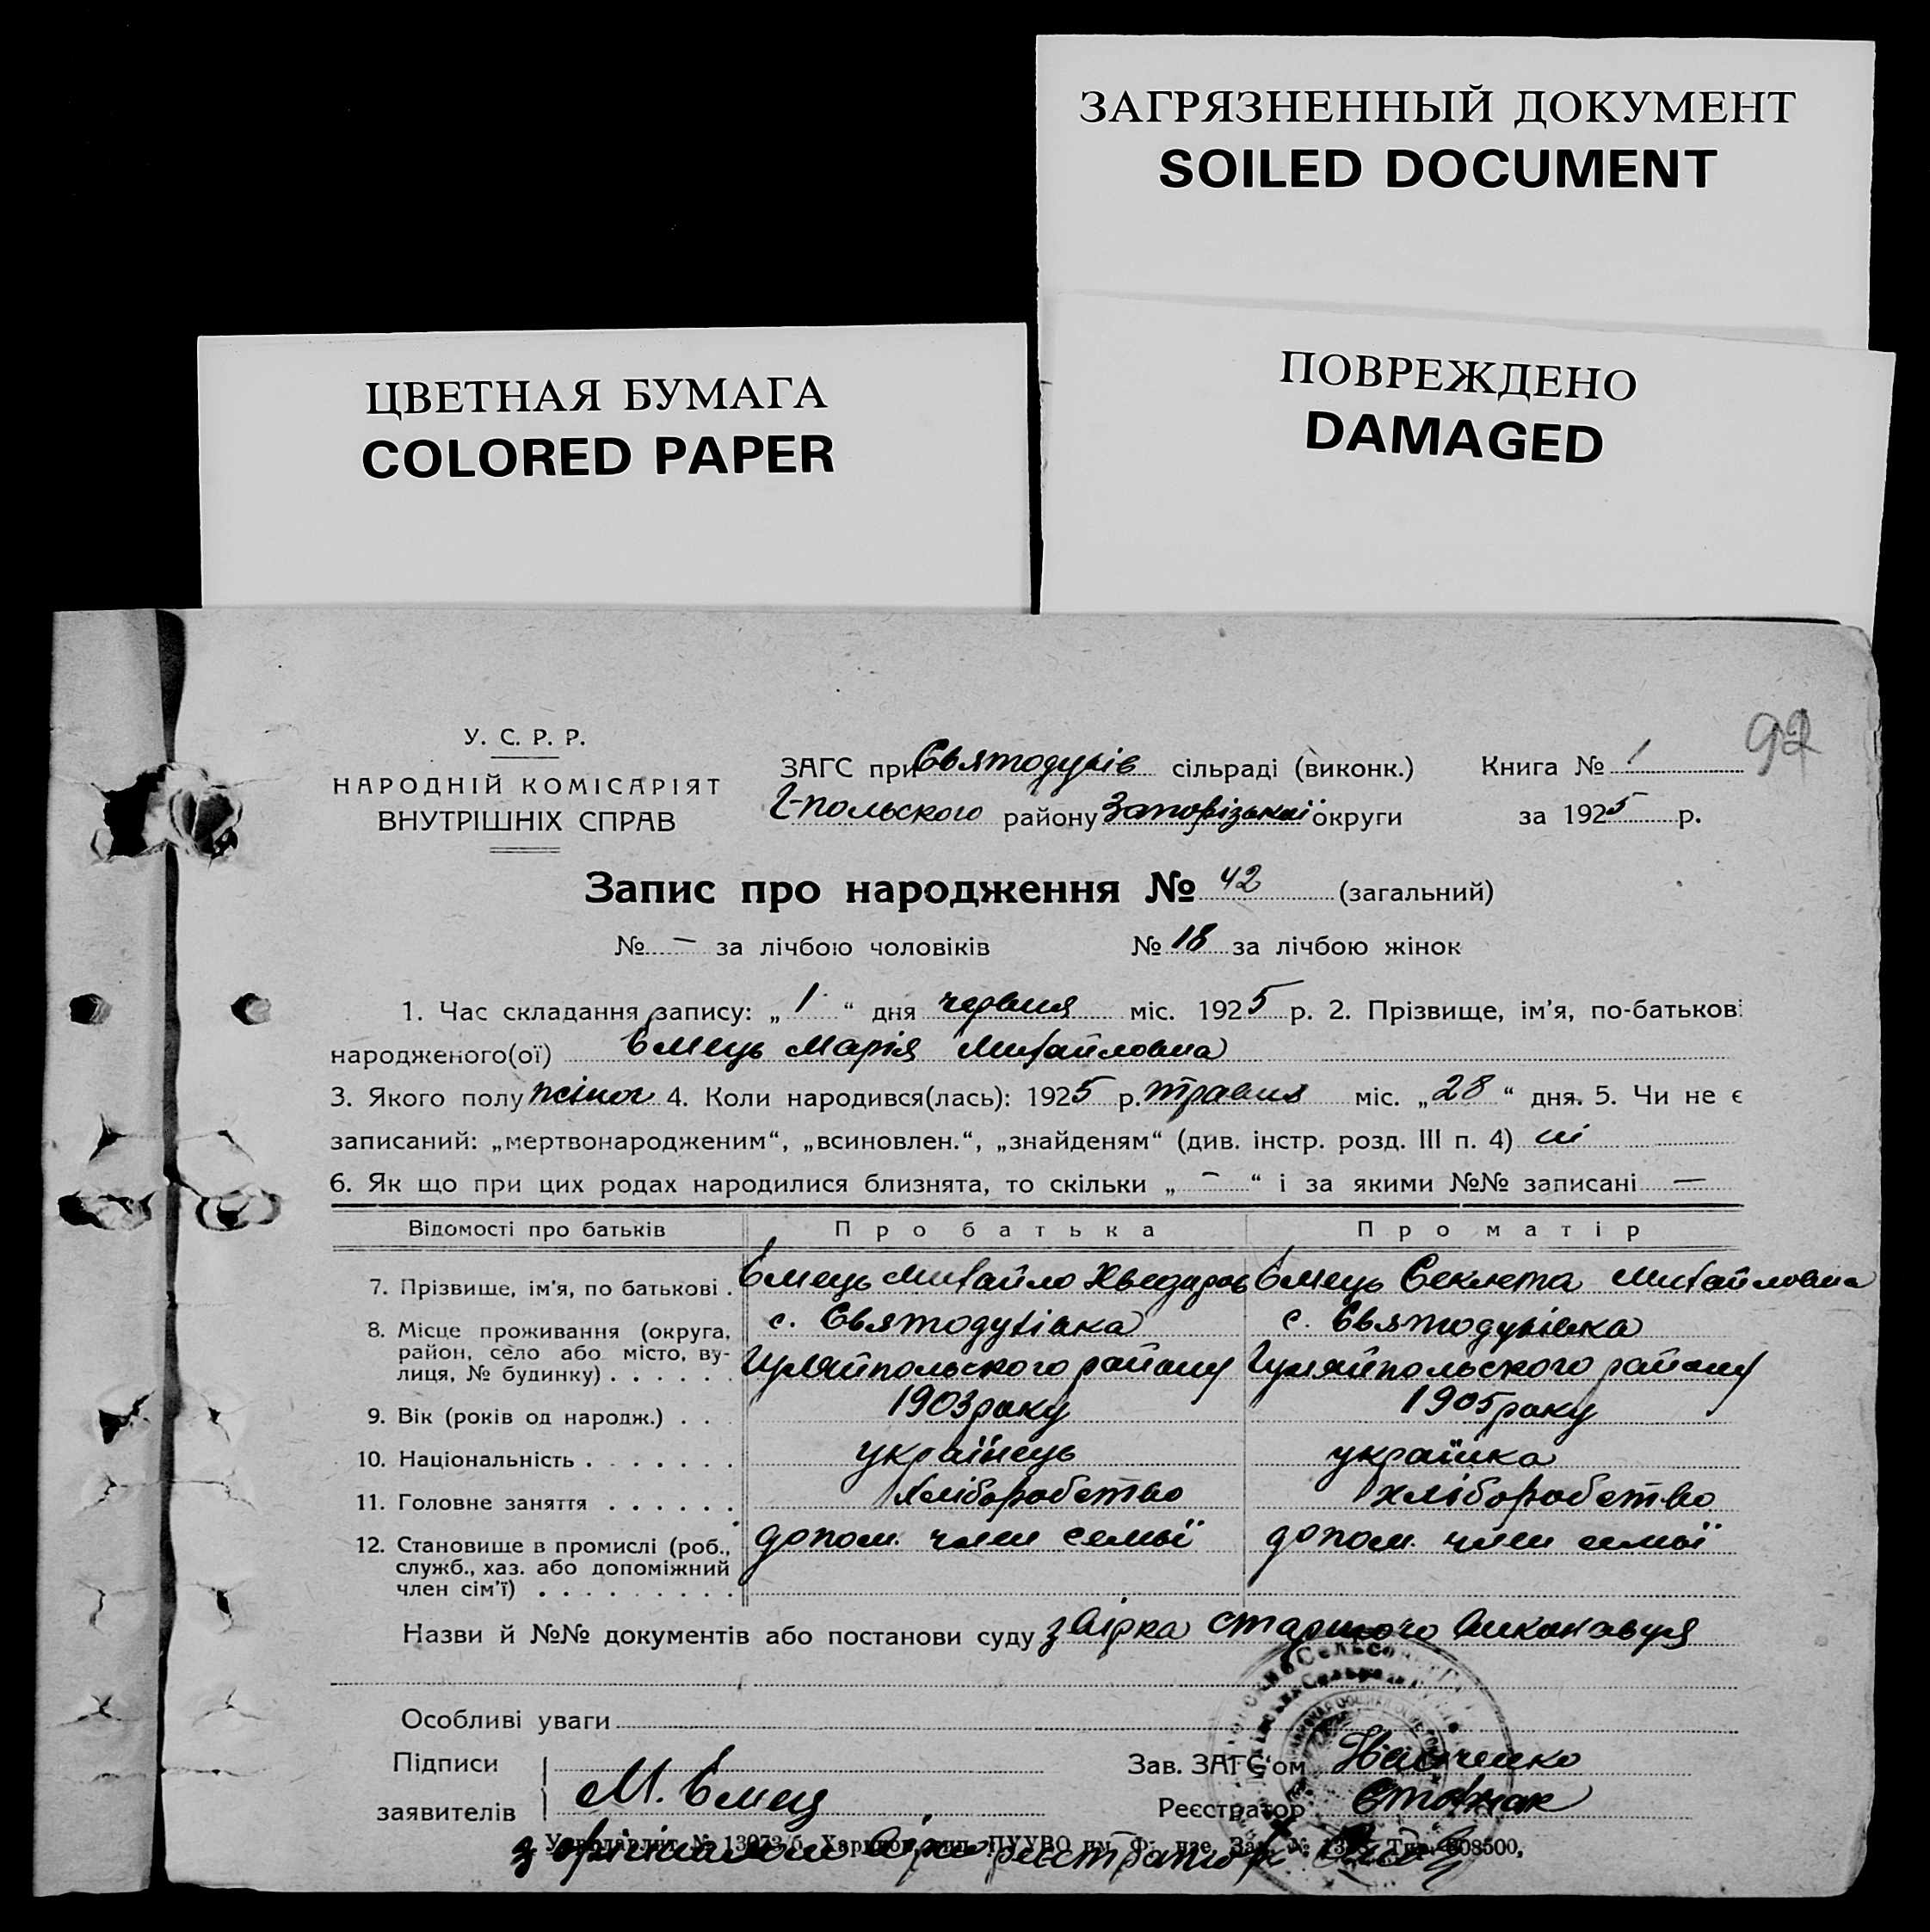 ЗАГРЯЗНЕННЫЙ ДОКУМЕНТ
SOILED DOCUMENT
ЦВЕТНАЯ БУМАГА
COLORED PAPER
ПОВРЕЖДЕНО
DAMAGED
92
У. С. Р. Р.
НАРОДНІЙ КОМІСАРІЯТ
ВНУТРІШНІХ СПРАВ
ЗАГС при Святодухів сільраді (виконк.) Книга № 1
Г-польского району Запорізької округи за 1925 р.
Запис про народження № 42 (загальний)
№ — за лічбою чоловіків № 18 за лічбою жінок
1. Час складання запису: „ 1 “ дня червня міс. 1925 р. 2. Прізвище, ім’я, по-батькові
народженого(ої) Ємець Марія Михайловна
3. Якого полу жіноч 4. Коли народився(лась): 1925 р. травня міс. „ 28 “ дня. 5. Чи не є
записаний: „мертвонародженим“, „всиновлен.“, „знайденям“ (див. інстр. розд. III п. 4) ні
6. Як що при цих родах народилися близнята, то скільки „ — “ і за якими №№ записані —
Відомості про батьків Про батька Про матір
7. Прізвище, ім’я, по батькові . Ємець Михайло Хведоров Ємець Секлета Михайловна
8. Місце проживання (округа, с. Святодухівка с. Святодухівка
район, село або місто, ву-
лиця, № будинку) . . . . . . Гуляйпольского району Гуляйпольского району
9. Вік (років од народж.) . . 1903 року 1905 року
10. Національність . . . . . . . українець українка
11. Головне заняття . . . . . . хліборобство хліборобство
12. Становище в промислі (роб., допом. член семьї допом. член семьї
служб., хаз. або допоміжний
член сім’ї) . . . . . . . . .
Назви й №№ документів або постанови суду звірка старшого виконавця
Особливі уваги
Підписи
заявителів М. Ємец
Зав. ЗАГС’ом
Реєстратор
Харків
з оригіналом вірно реєстратор